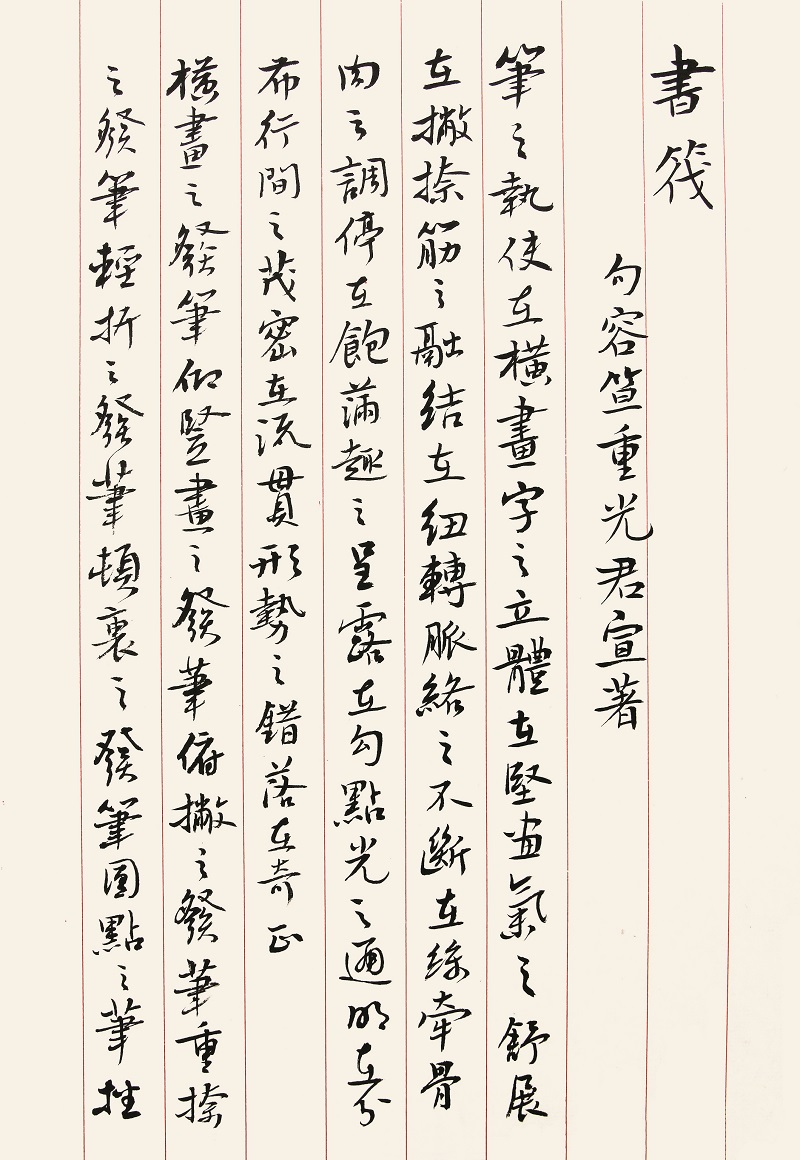 書筏
句容笪重光君宣著
筆之執使在橫畫字之立體在堅画氣之舒展
在撇捺筋之融結在紐轉脈絡之不斷在絲牽骨
肉之調停在飽滿趣之呈露在勾點光之通明在分
布行間之茂密在流貫形勢之錯落在奇正
橫畫之發筆仰竪畫之發筆俯撇之發筆重捺
之發筆輕折之發筆頓裹之發筆圓點之筆挫